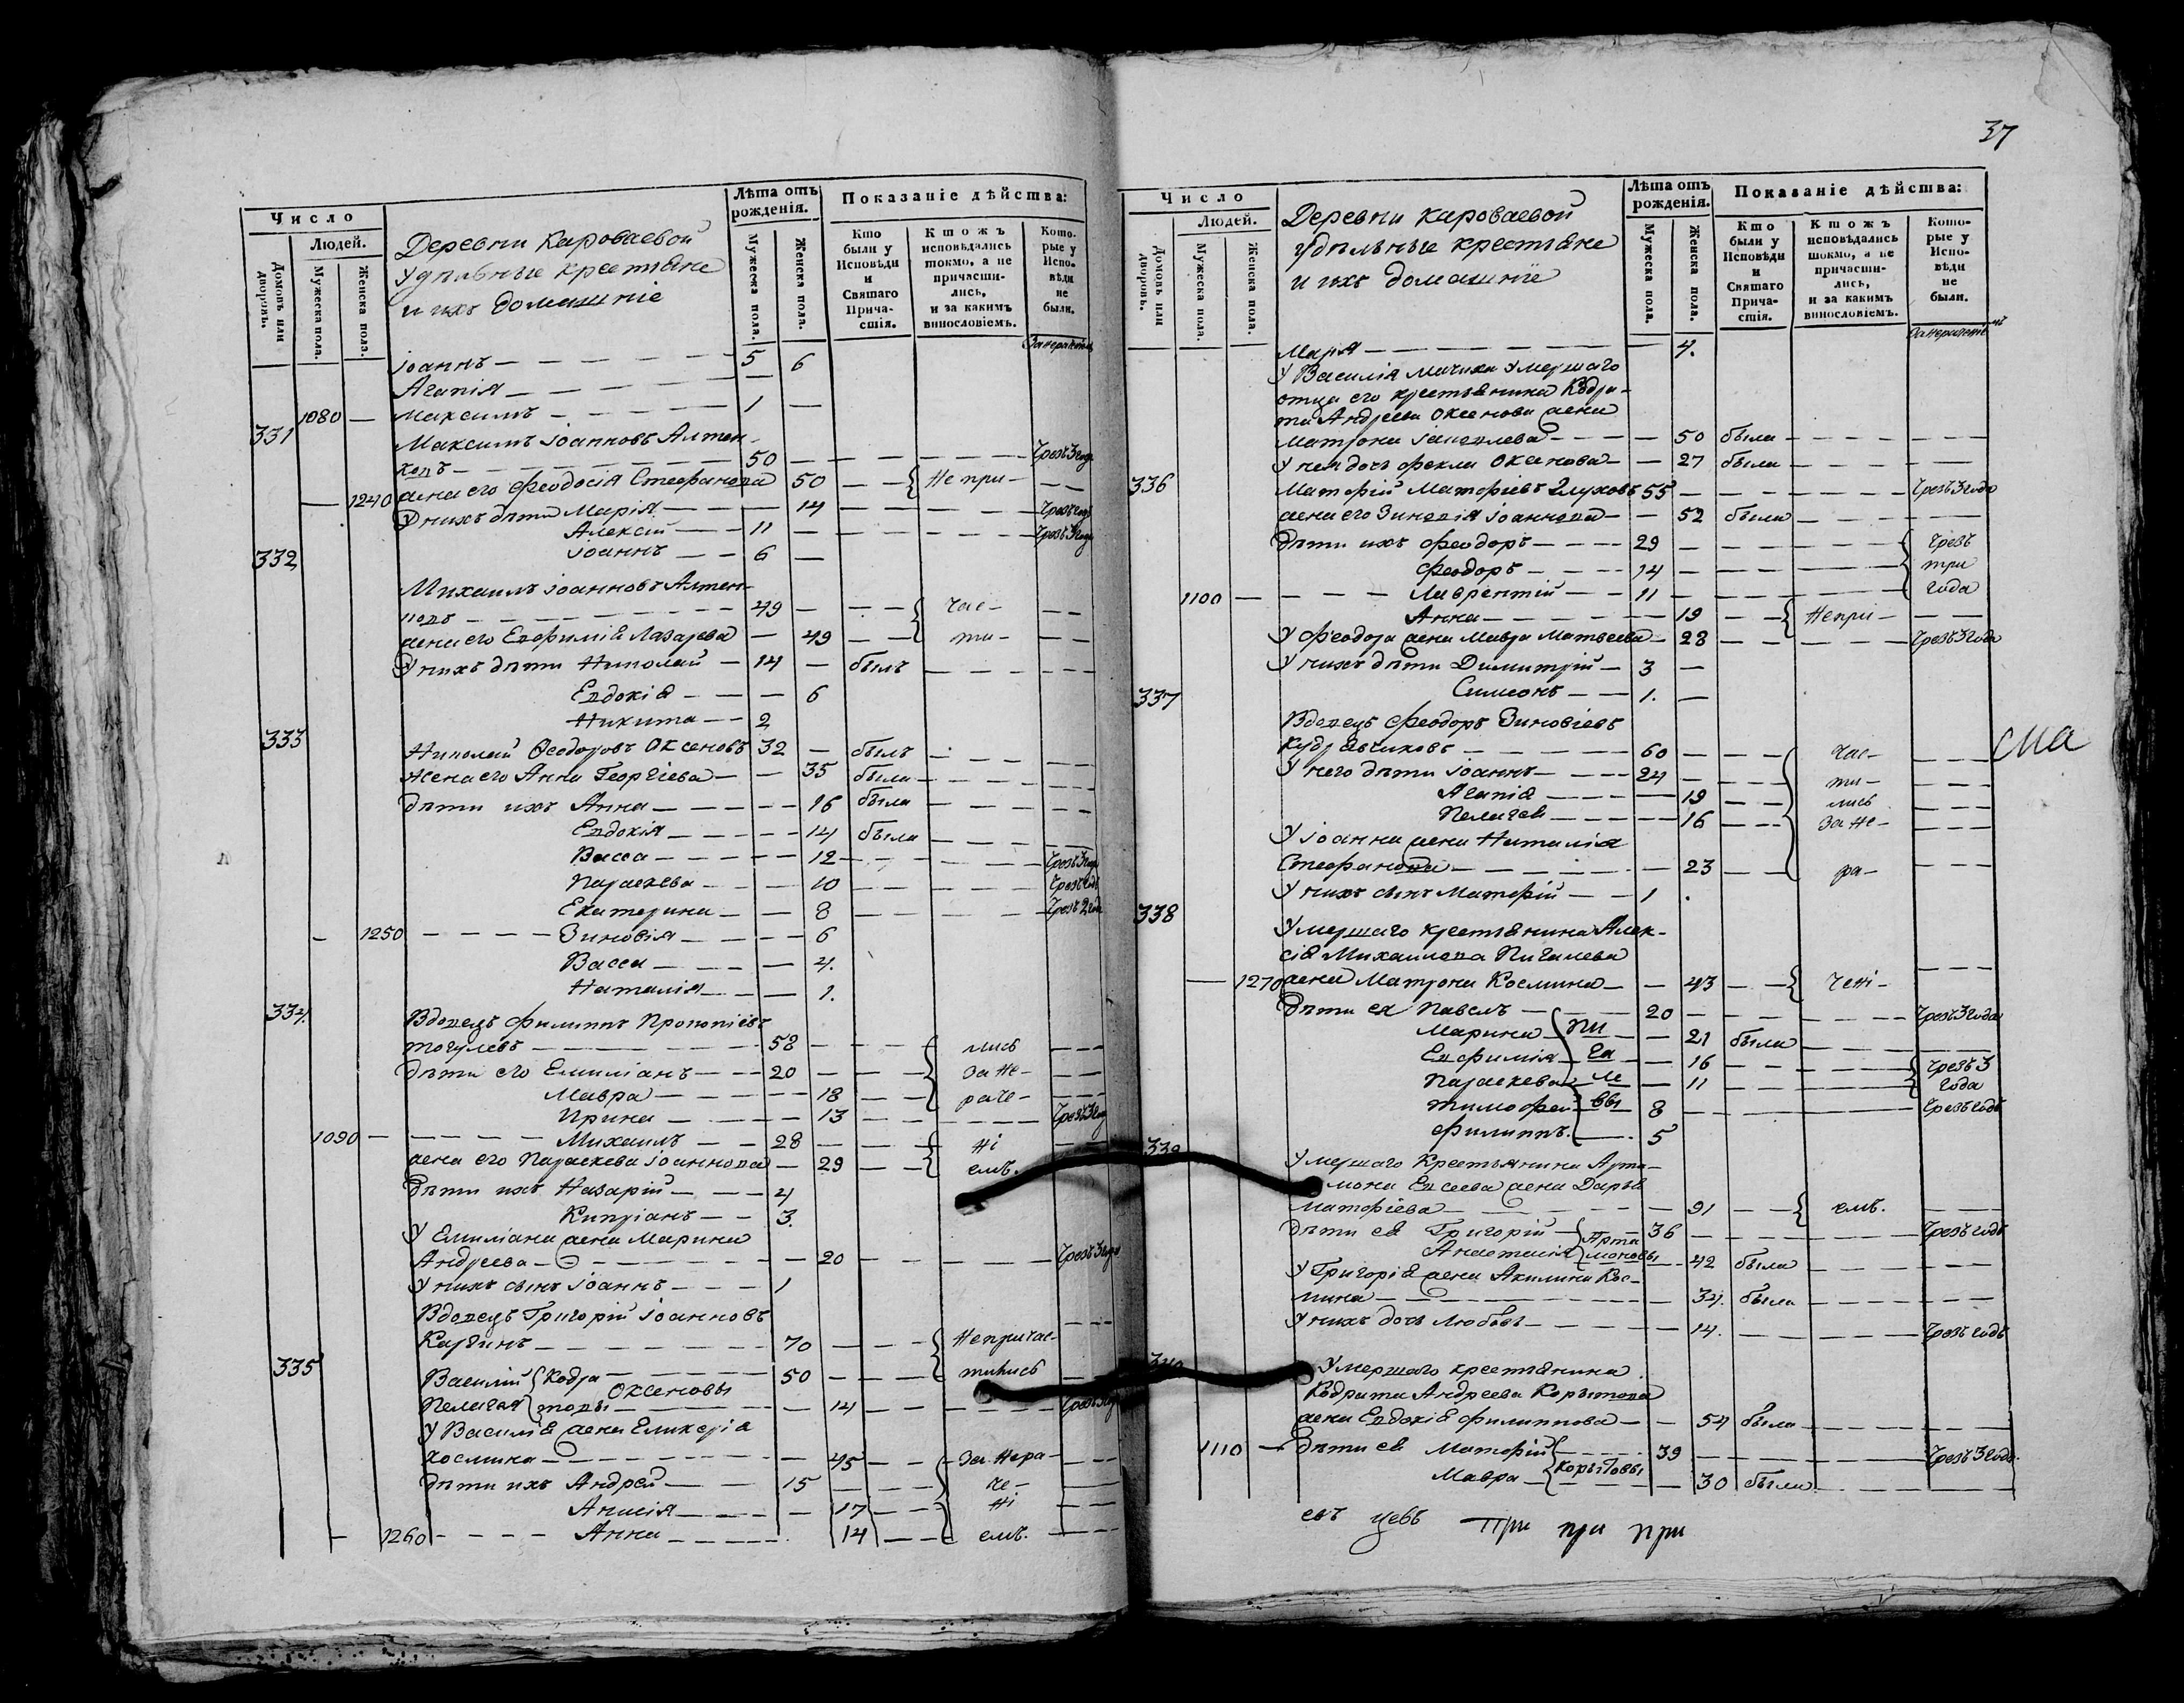 Число
Людей.
Домовъ или дворовъ.
Мужеска пола.
Женска пола.
Деревни Кароваевой
удѣльные крестьяне
и ихъ домашніе
Лѣта отъ рожденія.
Мужеска пола.
Женска пола.
Показаніе дѣйства:
Кто были у Исповѣди и Святаго Причастія.
Ктожъ исповѣдались токмо, а не причастились, и за какимъ винословіемъ.
Которые у Исповѣди не были.
Іоаннъ — 5
Агапія — 6
1080 — Максимъ — 1 —
331 Максимъ Іоанновъ
50 — Чрезъ 3 года
1240 жена его Феодосія Стефанова 50 — — Не при-
У нихъ дѣти Марія — 14 —
Алексій — 11 — Чрезъ 3 года
Іоаннъ — 6 —
332
Михаилъ Іоанновъ
49 — час-
жена его Евфимія Лазарева — 49 — ти-
У нихъ дѣти Николай — 14 — былъ
Евдокія — 6
Никита — 2
333 Николай Ѳеодоровъ Оксеновъ 32 — былъ
Жена его Анна Георгіева — 35 была
Дѣти ихъ Анна — 16 была
Евдокія — 14 была
Васса — 12 — Чрезъ 3 года
Параскева — 10 — Чрезъ годъ
Екатерина — 8 — Чрезъ 2 года
1250 — Зиновія — 6
Васса — 4.
Наталія — 1.
334. Вдовецъ Филиппъ Прокопіевъ
58 — лись
Дѣти его Емиліанъ — 20 — За не-
Мавра — 18 — раче-
Ирина — 13 — Чрезъ 3 года
1090 — Михаилъ — 28 — ні
жена его Параскева Іоаннова — 29 — емъ.
Дѣти ихъ Назарій — 4
Кипріанъ — 3.
У Емиліана жена Марина
Андреева — 20 — Чрезъ 3 года
У нихъ сынъ Іоаннъ — 1
Вдовецъ Григорій Іоанновъ
70 — Не причас-
335 Василій Кодра — 50 — тились
Оксеновы
Пелагея товы — 14 —
У Василія жена Гликерія
Космина — 45 — За нера-
Дѣти ихъ Андрей — 15 — че-
Анисія — 17 — ні
1260 — Анна — 14 — емъ.
37
Число
Людей.
Домовъ или дворовъ.
Мужеска пола.
Женска пола.
Деревни Кароваевой
удѣльные крестьяне
и ихъ домашніе
Лѣта отъ рожденія.
Мужеска пола.
Женска пола.
Показаніе дѣйства:
Кто были у Исповѣди и Святаго Причастія.
Ктожъ исповѣдались токмо, а не причастились, и за какимъ винословіемъ.
Которые у Исповѣди не были.
Марія — 4.
У Василія мачиха умершаго
отца его крестьянина Кодра-
та Андреева Оксенова жена
Матрона — 50 была
У нея дочь Фекла Оксенова — 27 была
336 Матфій Матфіевъ Глуховъ 55 — Чрезъ 3 года
жена его Зиновія Іоаннова — 52 была
Дѣти ихъ Феодоръ — 29 — Чрезъ
Феодоръ — 14 — три
1100 — Лаврентій — 11 — года
Анна — 19 — Непри-
У Феодора жена Мавра Матвеева — 28 — Чрезъ 3 года
У нихъ дѣти Димитрій — 3 —
337 Симеонъ — 1. —
Вдовецъ Феодоръ Зиновіевъ
Кудрявчиковъ — 60 — час-
сиа
У него дѣти Іоаннъ — 24 — ти-
Агапія — 19 — лись
Пелагея — 16 — За не-
У Іоанна жена Наталія
Стефанова — 23 — ра-
У нихъ сынъ Матфій — 1.
338 Умершаго крестьянина Алек-
сія Михаилова Пигалева
1270 жена Матрона Космина — 43 — чені-
Дѣти ея Павелъ — 20 — Чрезъ 3 года
Марина пи — 21 была
Евфимія га — 16 — Чрезъ 3
Параскева ле — 11 — года
Тимофей вы 8 — Чрезъ годъ
Филиппъ — 5
339 Умершаго Крестьянина Арта-
мона Евсеева жена Дарья
Матфіева — 91 — емъ.
Дѣти ея Григорій Арта 36 — Чрезъ годъ
Анастасія моновы — 42 была
У Григорія жена Акилина Кос-
мина — 34. была
У нихъ дочь Любовь — 14. — Чрезъ годъ
340 Умершаго крестьянина
Кодрата Андреева Корытова
жена Евдокія Филиппова — 54 была
1110 — Дѣти ея Матфій — 39 — Чрезъ 3 года.
Мавра Корытовы — 30 была
евъ цевъ При при при